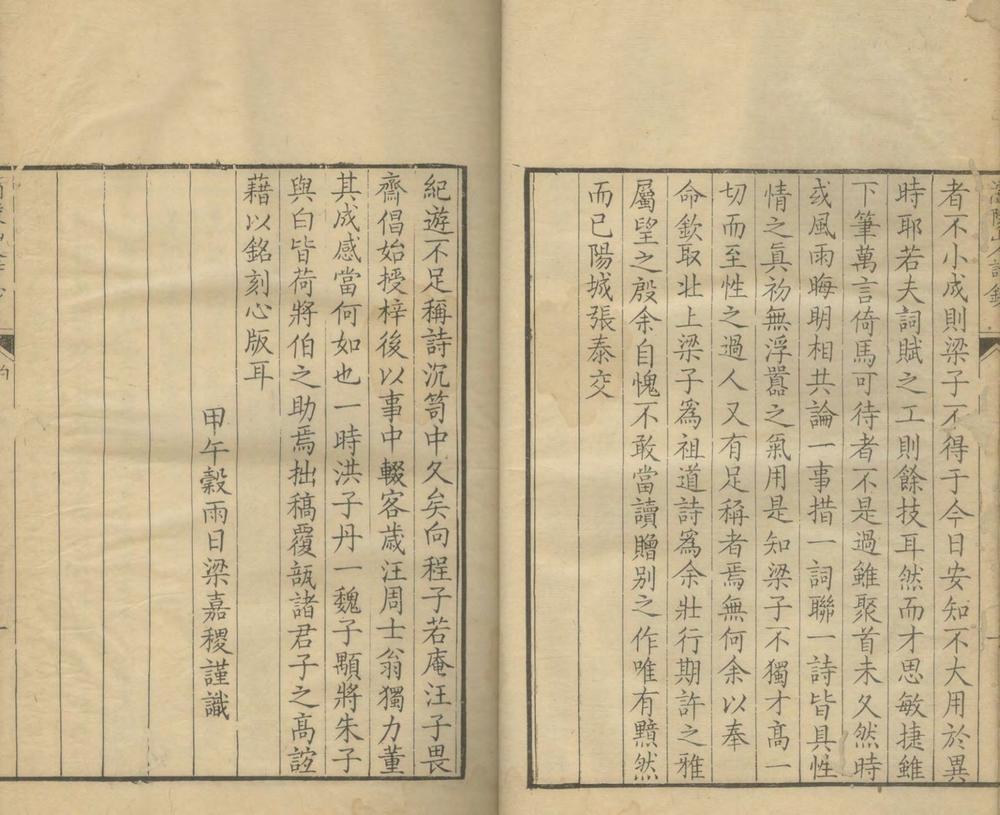 者不小成則梁子不得于今日安知不大用於異
時耶若夫詞賦之工則餘技耳然而才思敏捷雖
下筆萬言倚馬可待者不是過雖聚首未久然時
或風雨晦明相共論一事措一詞聯一詩皆具性
情之真初無浮囂之氣用是知梁子不獨才高一
切而至性之過人又有足稱者焉無何余以奉
命欽取北上梁子爲祖道詩爲余壯行期許之雅
屬望之殷余自愧不敢當讀贈別之作唯有黯然
而已陽城張泰交
紀遊不足稱詩沉笥中久矣向程子若庵汪子畏
齋倡始授梓後以事中輟客歲汪周士翁獨力董
其成感當何如也一時洪子丹一魏子顯將朱子
與白皆荷將伯之助焉拙稿覆瓿諸君子之高誼
藉以銘刻心版耳
甲午穀雨日梁嘉稷謹識